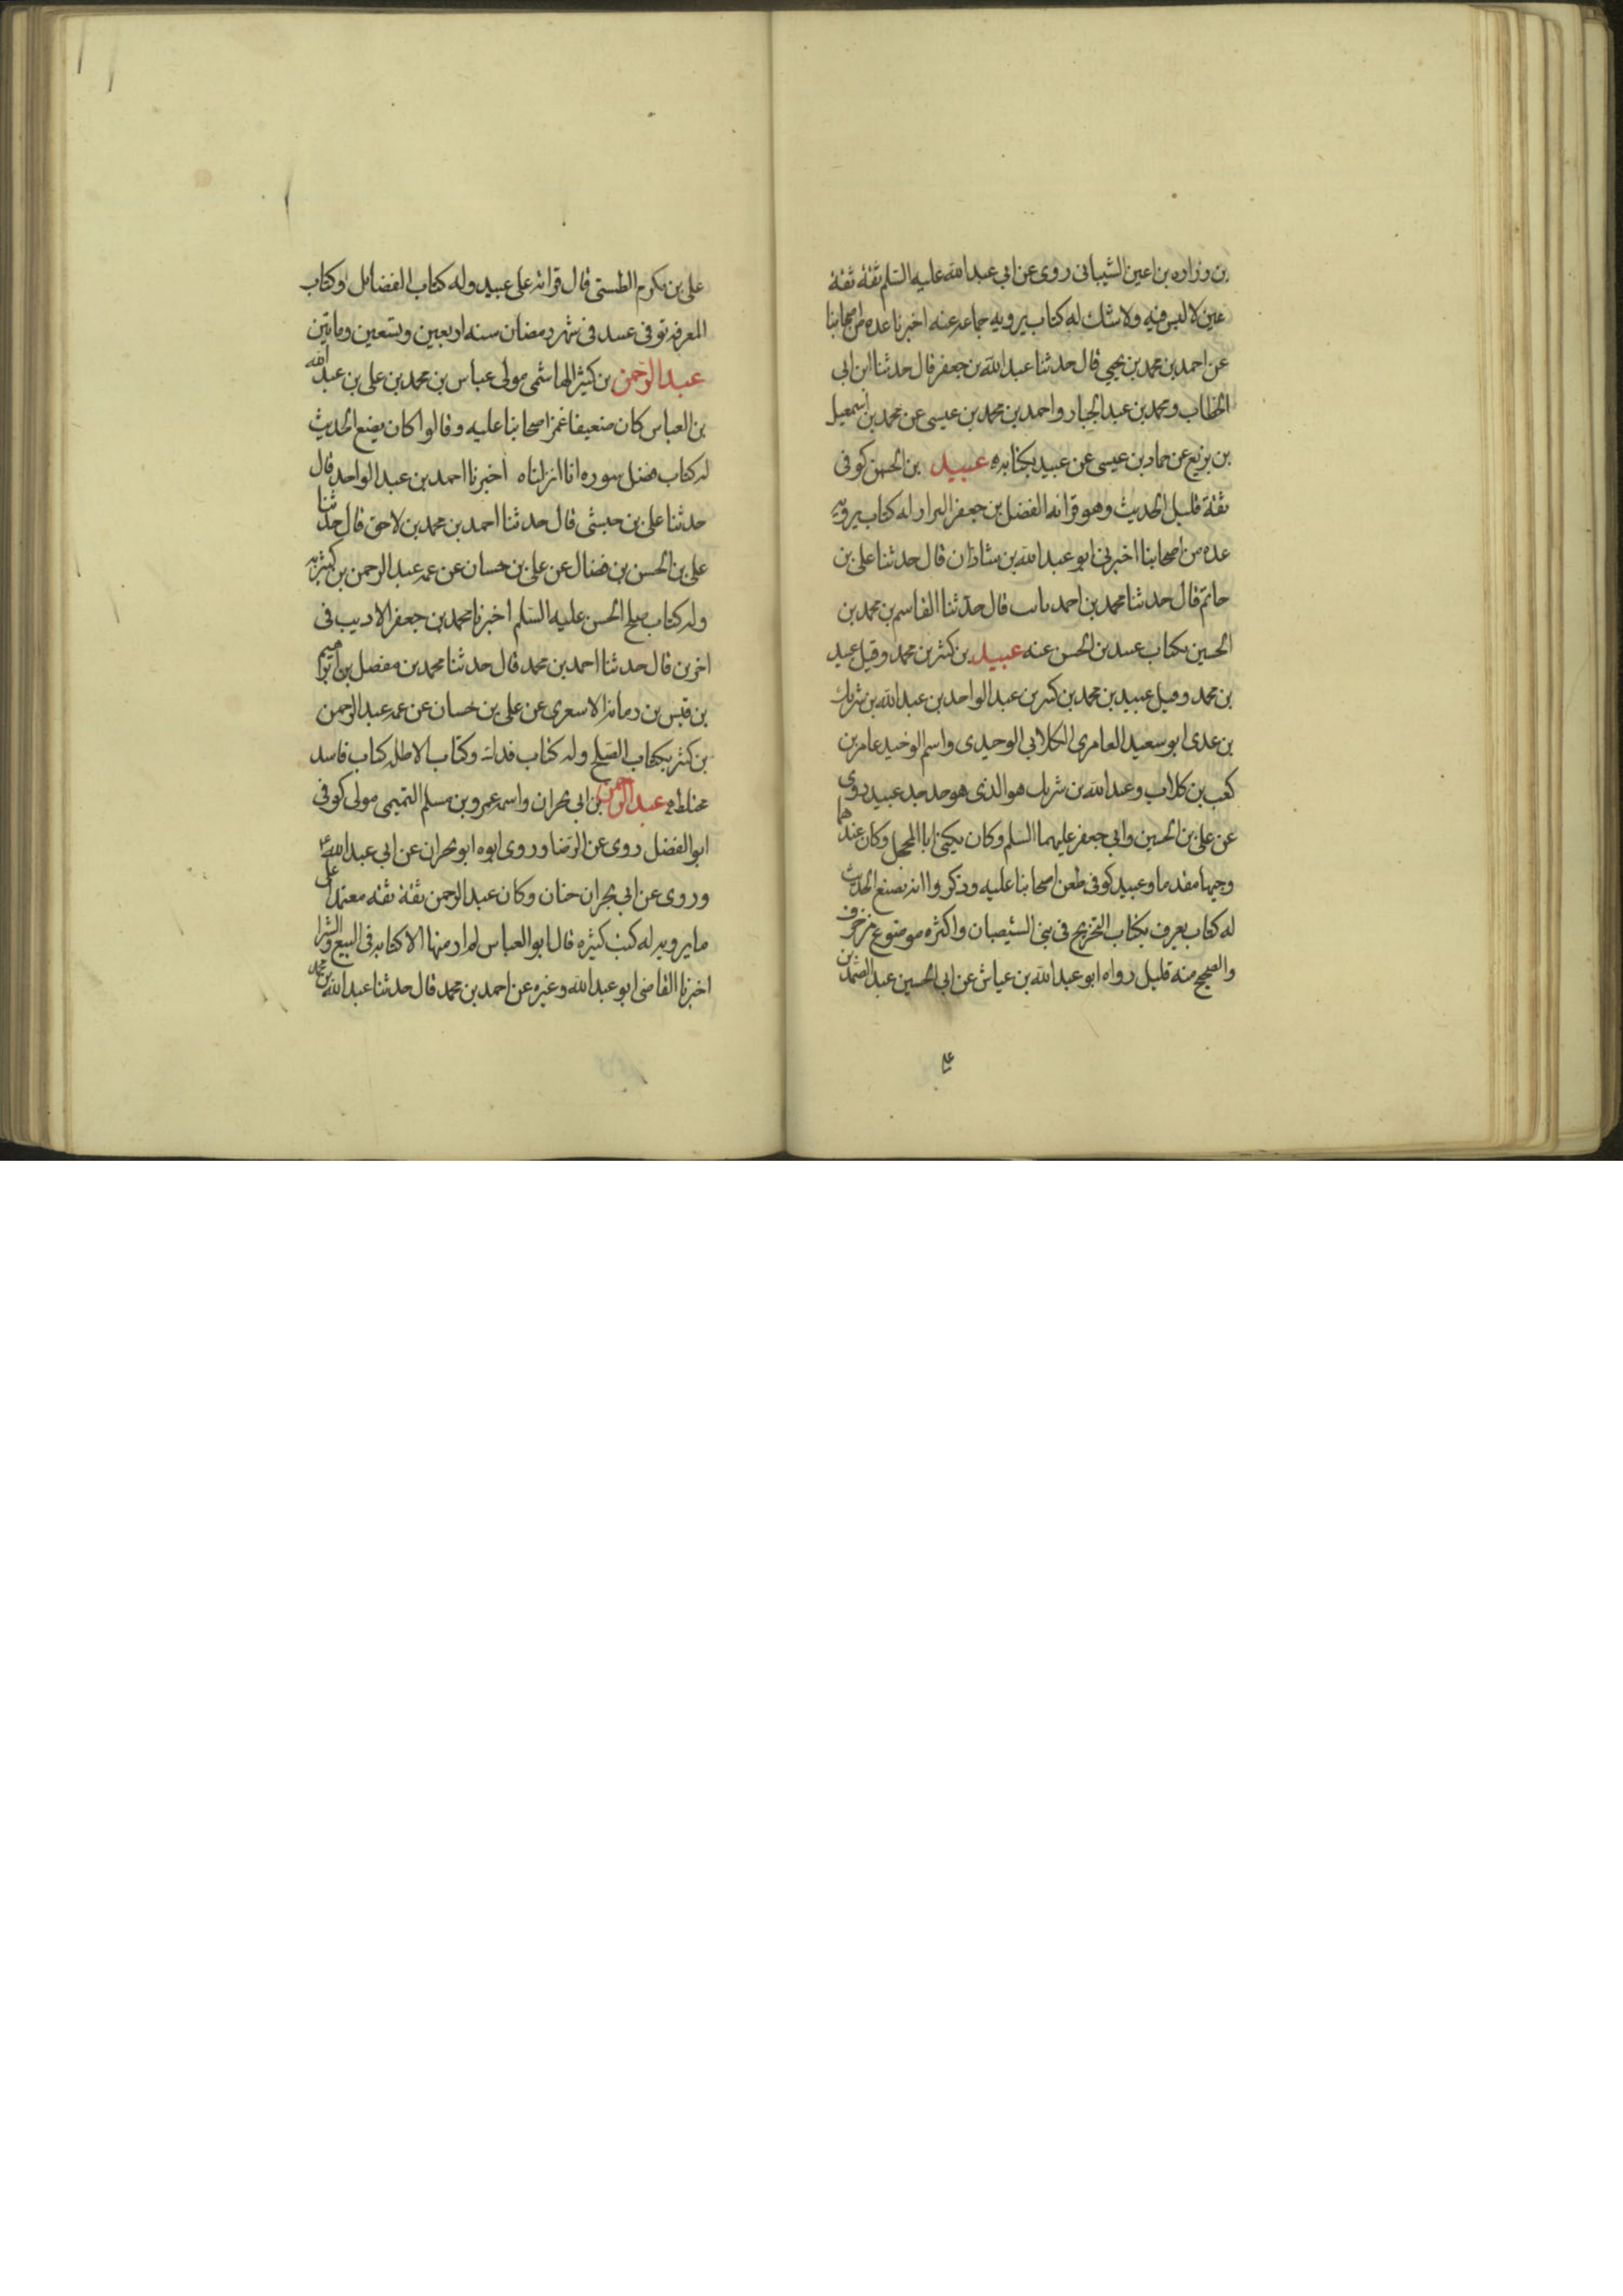 بن وزاره بن اعين الشيباني روى عن ابي عبد الله عليه السلم ثقة ثقة
عين لا لبس فيه ولا شك له كتاب يرويه جماعه عنه اخبرنا عده من اصحابنا
عن احمد بن محمد بن يحيى قال حدثنا عبد الله بن جعفر قال حدثنا ابن ابى
الخطاب ومحمد بن عبد الجبار واحمد بن محمد بن عيسى عن محمد بن اسمعيل
بن بزيع عن حماد بن عيسى عن عبيد بكتابه عبيد بن الحسن كوفى
ثقة قليل الحديث وهو قرانه الفضل بن جعفر البراد له كتاب يرويه
عده من اصحابنا اخبرنى ابو عبد الله بن شاذان قال حدثنا على بن
حاتم قال حدثنا محمد بن احمد ثابت قال حدثنا القاسم بن محمد بن
الحسين بكتاب عبيد بن الحسن عنه عبيد بن كثير بن محمد وقيل عبيد
بن محمد وقيل عبيد بن محمد بن كثير بن عبد الواحد بن عبد الله بن شريك
بن عدى ابو سعيد العامرى الكلابى الوحيدى واسم الوحيد عامر بن
كعب بن كلاب وعبد الله بن شريك هو الذى هو جد جد عبيد روى
عن على بن الحسين وابى جعفر عليهما السلم وكان يكنى ابا المحجل وكان عندهما
وجيها مقدما وعبيد كوفى طعن اصحابنا عليه وذكروا انه يضع الحديث
له كتاب يعرف بكتاب التخريج فى بنى الشيصبان واكثره موضوع مزخرف
والصحيح منه قليل رواه ابو عبد الله بن عياش عن ابى الحسين عبد الصمد بن
على
على بن مكرم الطستى قال قراته على عبيد وله كتاب الفضايل وكتاب
المعرفه توفى عبيد فى شهر رمضان سنه اربعين وتسعين ومايتين
عبد الرحمن بن كثير الهاشمى مولى عباس بن محمد بن على بن عبد الله
بن العباس كان ضعيفا غمز اصحابنا عليه وقالوا كان يضع الحديث
له كتاب فضل سوره انا انزلناه اخبرنا احمد بن عبد الواحد قال
حدثنا على بن حبشى قال حدثنا احمد بن محمد بن لاحق قال حدثنا
على بن الحسن بن فضال عن على بن حسان عن عمه عبد الرحمن بن كثير به
وله كتاب صلح الحسن عليه السلم اخبرنا محمد بن جعفر الاديب فى
اخرين قال حدثنا احمد بن محمد قال حدثنا محمد بن مفضل بن ابراهيم
بن قيس بن رمانه الاشعرى عن على بن حسان عن عمه عبد الرحمن
بن كثير بكتاب الصلح وله كتاب فدك وكتاب الاظله كتاب فاسد
مختلط عبد الرحمن بن ابى نجران واسمه عمرو بن مسلم التميمى مولى كوفى
ابو الفضل روى عن الرضا وروى ابوه ابو نجران عن ابى عبد الله ع
وروى عن ابى نجران حنان وكان عبد الرحمن ثقة ثقه معتمدا على
ما يرويه له كتب كثيره قال ابو العباس لم ار منها الا كتابه فى البيع والشرا
اخبرنا القاضى ابو عبد الله وغيره عن احمد بن محمد قال حدثنا عبد الله بن محمد